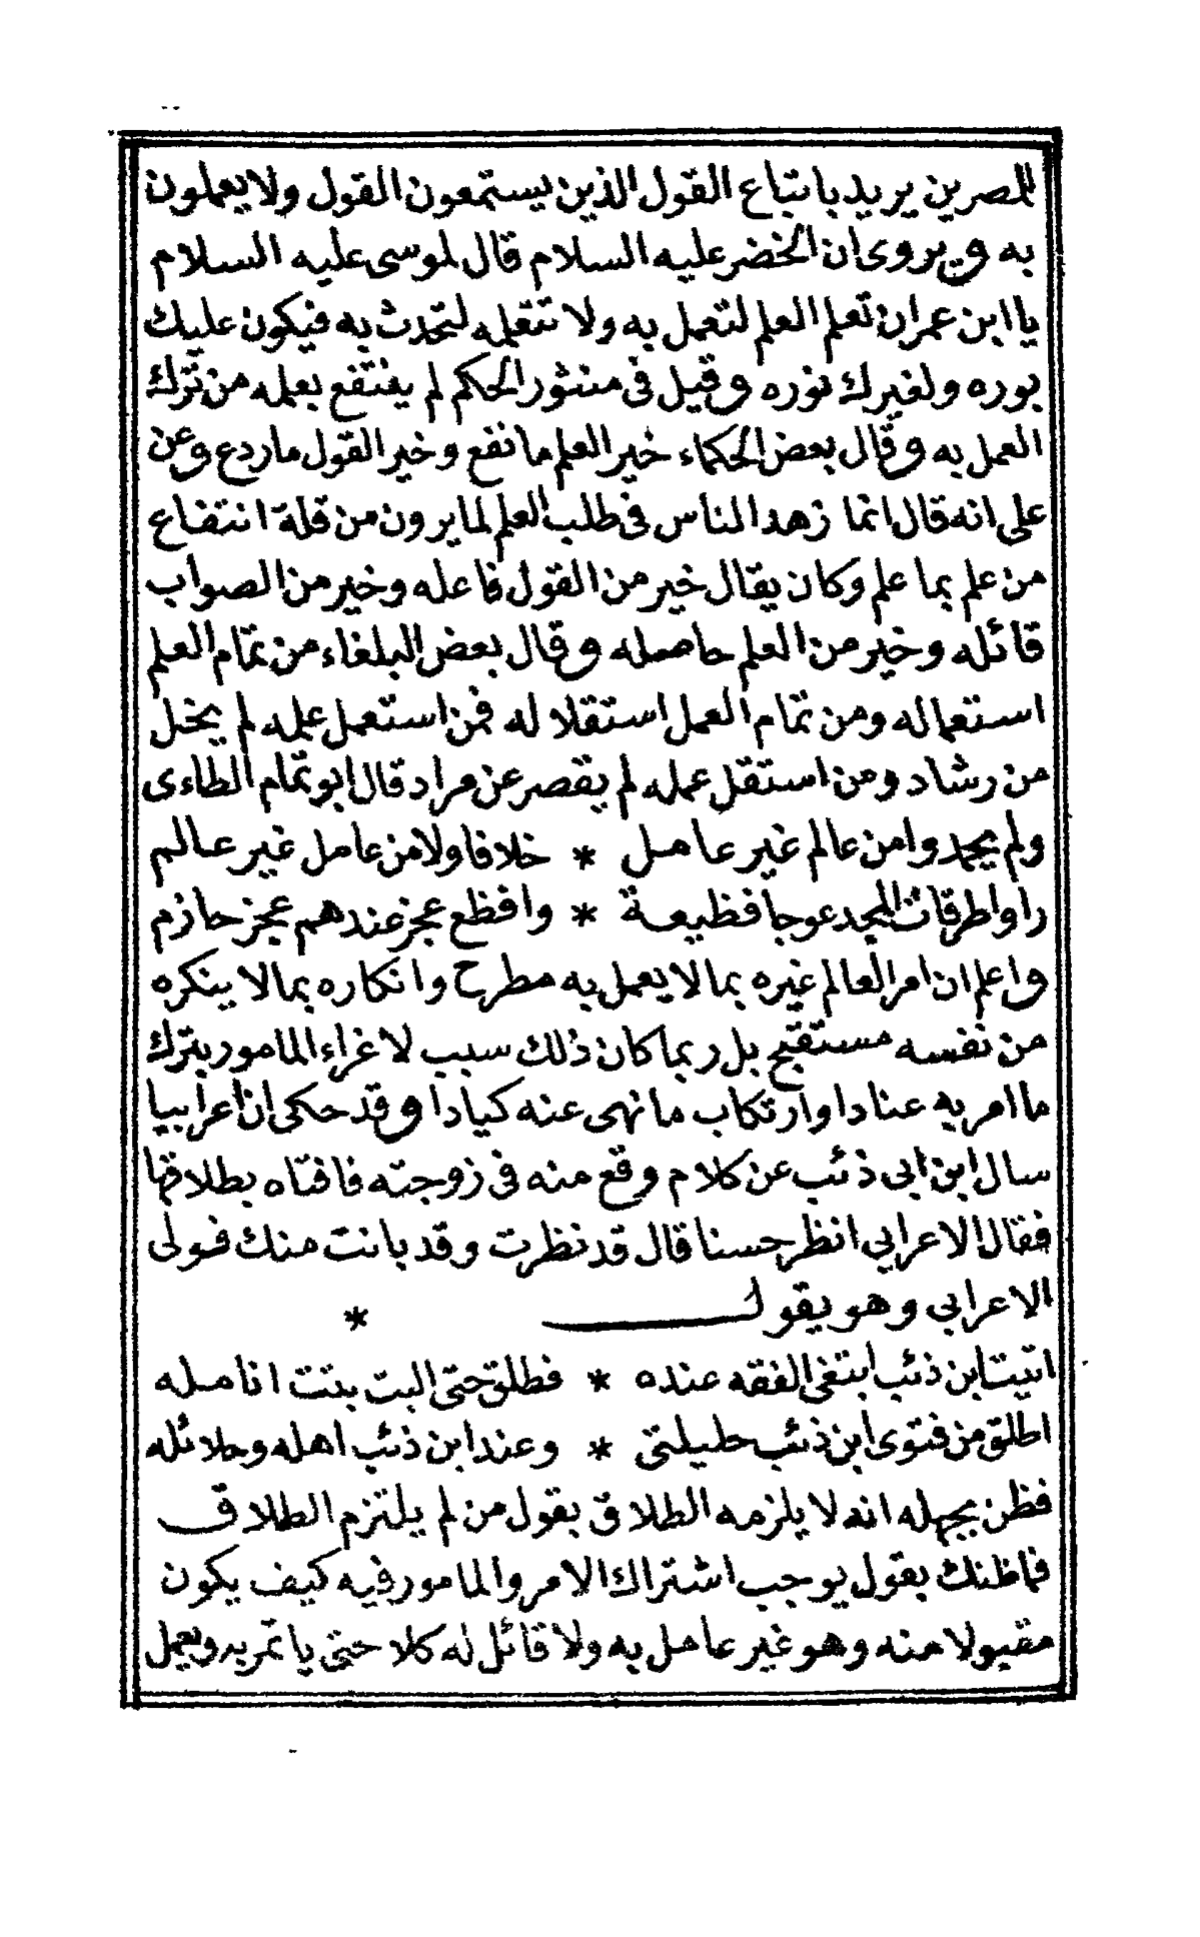 للمصرين يريد باتباع القول الذين يستمعون القول ولا يعملون
به ويروى ان الخضر عليه السلام قال لموسى عليه السلام
يا ابن عمران تعلم العلم لتعمل به ولا تتعلمه لتحدث به فيكون عليك
بوره ولغيرك نوره وقيل فى منثور الحكم لم ينتفع بعلمه من ترك
العمل به وقال بعض الحكماء خير العلم ما نفع وخير القول ما ردع وعن
على انه قال انما زهد الناس فى طلب العلم لما يرون من قلة انتفاع
من علم بما علم وكان يقال خير من القول فاعله وخير من الصواب
قائله وخير من العلم حامله وقال بعض البلغاء من تمام العلم
استعماله ومن تمام العمل استقلاله فمن استعمل علمه لم يخل
من رشاد ومن استقل عمله لم يقصر عن مراد قال ابو تمام الطاءى
ولم يحمدوا من عالم غير عامل * خلافا ولا من عامل غير عالم
راوا طرقات المجد عوجا فظيعة * وافظع عجز عندهم عجز حازم
واعلم ان امر العالم غيره بما لا يعمل به مطرح وانكاره بما لا ينكره
من نفسه مستقبح بل ربما كان ذلك سبب لاغراء المامور بترك
ما امر به عنادا وارتكاب ما نهى عنه كيادا وقد حكى ان اعرابيا
سال ابن ابى ذئب عن كلام وقع منه فى زوجته فافتاه بطلاقها
فقال الاعرابي انظر حسنا قال قد نظرت وقد بانت منك فولى
الاعرابي وهو يقول *
اتيت ابن ذئب ابتغى الفقه عنده * فطلق حتى البت بتت انامله
اطلق من فتوى ابن ذئب حليلتى * وعند ابن ذئب اهله وحلائله
فظن بجهله انه لا يلزمه الطلاق بقول من لم يلتزم الطلاق
فما ظنك بقول يوجب اشتراك الامر والمامور فيه كيف يكون
مقبولا منه وهو غير عامل به ولا قائل له كلا حتى ياتمر به ويعمل